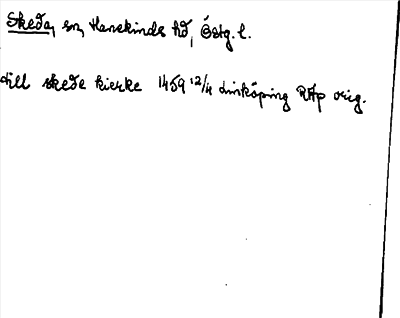 Skeda, sn, Hanekinds hd, Östg. l.
till skede kirke 1459 12/4 Linköping RAp orig.